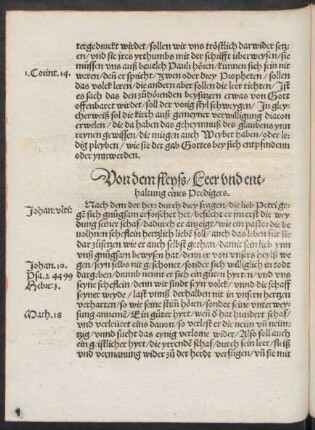 tergedruckt wirdet/ sollen wir vns tröstlich darwider setz-
en/ vnd sie jres yrthumbs mit der schrifft überweysen/ sie
müssen vns auß beuelch Pauli hören/ künnen sich sein nit
1.Corint. 14. weren/ den er spricht/ Zwen oder drey Propheten/ sollen
das volck leren/ die andern aber sollen die leer richten/ Ist
es sach das den zühörenden beysitzern etwas von Gott
offenbaret wirdet/ soll der vorig stylschweygen/ In gley-
cher weiß sol die kirch auß gemeyner verwilligung diacon
erwelen/ die da haben das geheymnuß des glaubens ynn
reynen gewissen/ die mügen auch Weyber haben/ oder le-
dig pleyben/ wie sie der gab Gottes bey sich entpfinden
oder ynnwerden.
Von dem fleyß/ Leer vnd ent-
haltung eines Predigers.
Johan: vlti: Nach dem der herr durch drey fragen/ die lieb Petri gege
sich gnügsam erforschet het/ befilcht er im erst die wey
dung seiner schaf/ dadurch er anzeigt/ wie ein pastor die be
uolhnen scheflein hertzlich lieb sol/ auch das leben für sie
dar züsetzen wie er auch selbst gethan/ damit sein lieb ynn
vnß gnügsam bewysen hat/ denn er von vnsers heyls we
Johan. 10. gen/ seyn selbs nit geschonet/ sonder sich williglich in todt
Psa. 2 44 99 dargeben/ dumb nennet er sich ein güten hyrten/ vnd vns
Hebre: 3. seyne scheflein/ denn wir sindt seyn volck/ vnnd die schaff
seyner weyde/ last vmß derhalben nit in vnsern hertzen
verhartten/ so wir seine stim hören/ sonder seine vnterwey
Math. 18 sung annemen/ Ein güter hyrt/ wen d hat hundert schaf/
vnd verleüret eins dauon/ so verlest er die neün vnd neün-
tzig/ vnnd sücht das eynig verlorne wider/ Also soll auch
ein geistlicher hyrt/ die yrrenden schaf/ durch sein leer/ fleiß
vnd vermanung wider zü der herde verfügen/ vnd sie mit